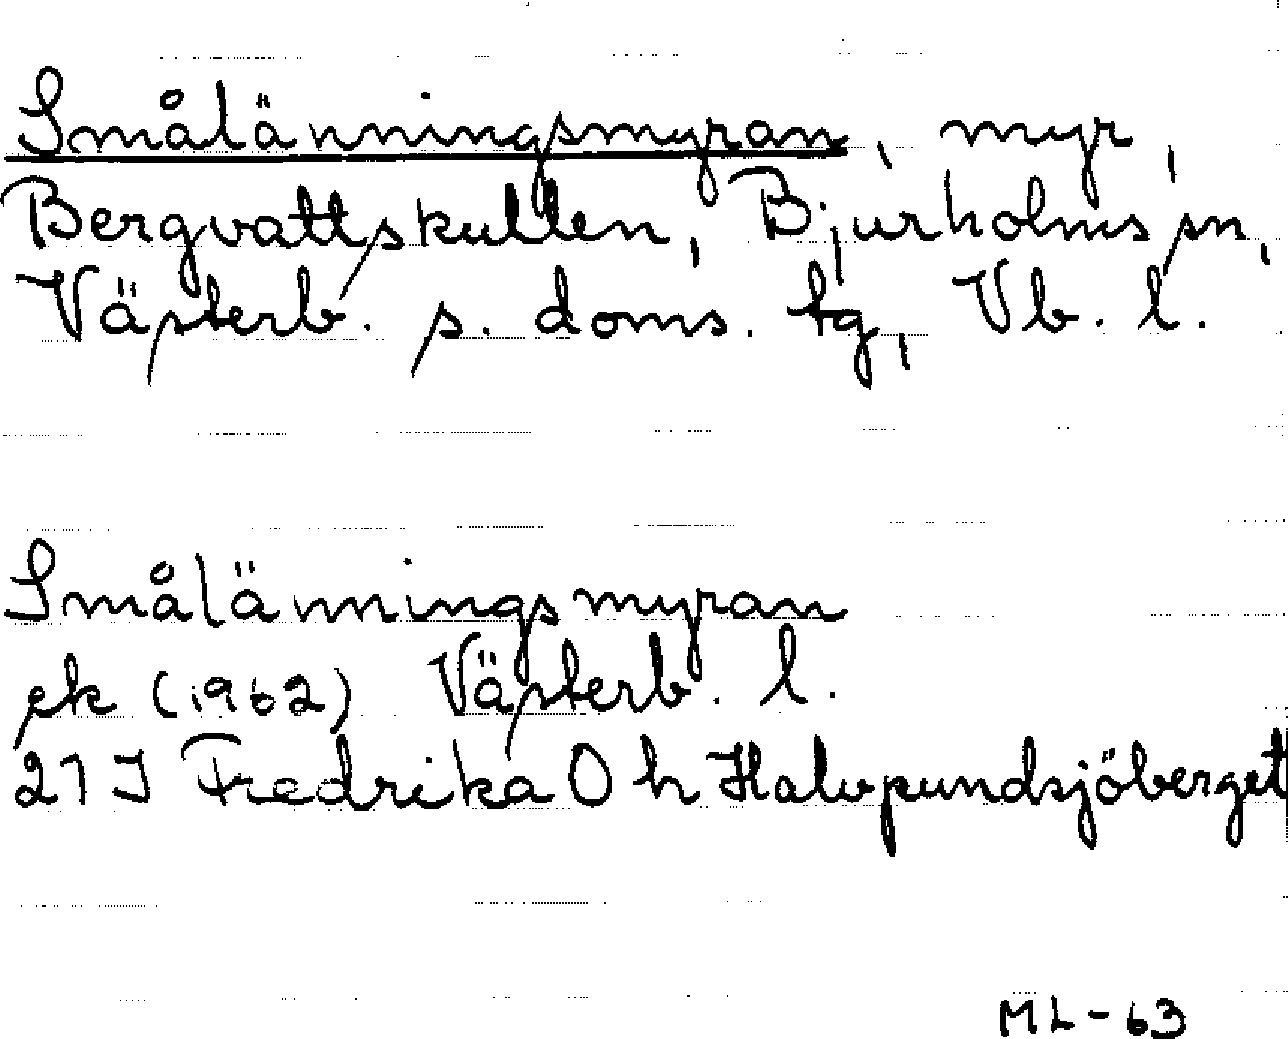 Smålänningsmyran, myr,
Bergvattskullen, Bjurholms sn,
Västerb. s. doms. tg, Vb. l.
Smålänningsmyran
ek (1962) Västerb. l.
21 J Fredrika O h Halvpundsjöberget
ML-63